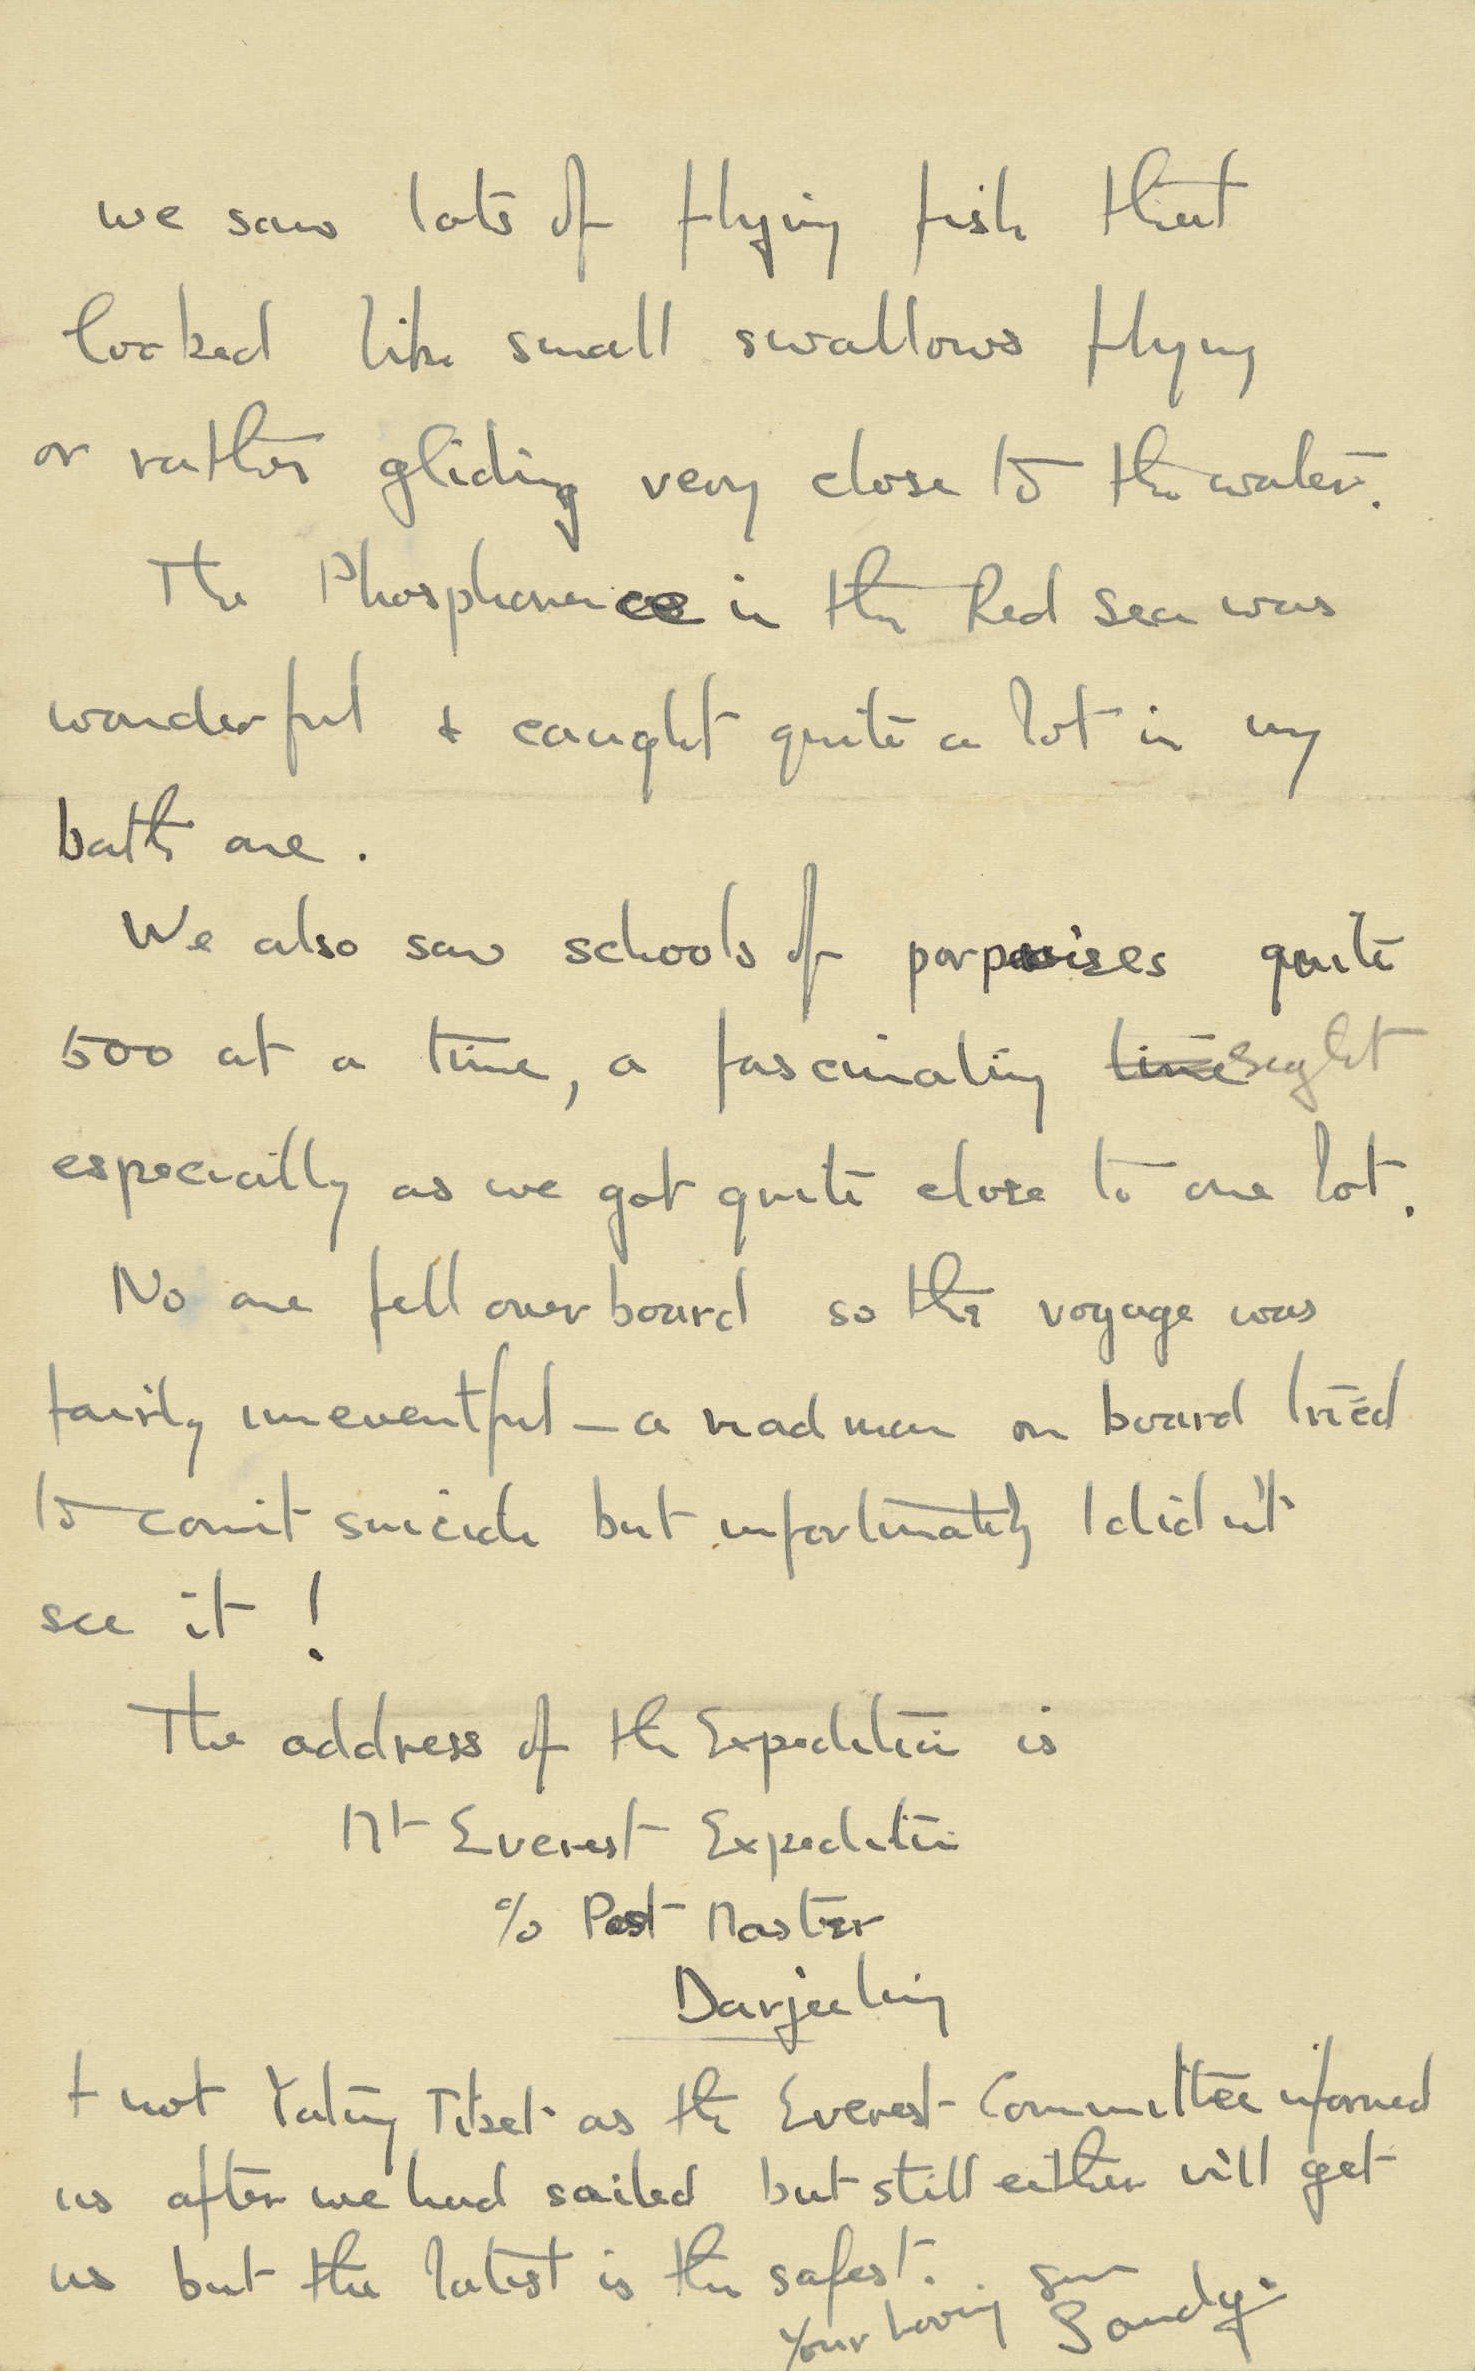 we saw lots of flying fish that
looked like small swallows flying
or rather gliding very close to the water.
The Phosphorence in the Red Sea was
wonderful & caught quite a lot in my
bath one.
We also saw schools of porpoises quite
500 at a time, a fascinating time sight
especially as we got quite close to one lot.
No one fell overboard so the voyage was
fairly uneventful – a mad man on board tried
to comit suicide but unfortunately I didn't
see it!
The address of the Expedition is
Mt Everest Expedition
c/o Post Master
Darjeeling
& not Yatung Tibet as the Everest Committee informed
us after we had sailed but still either will get
us but the latest is the safest.
Your loving son
Sandy.